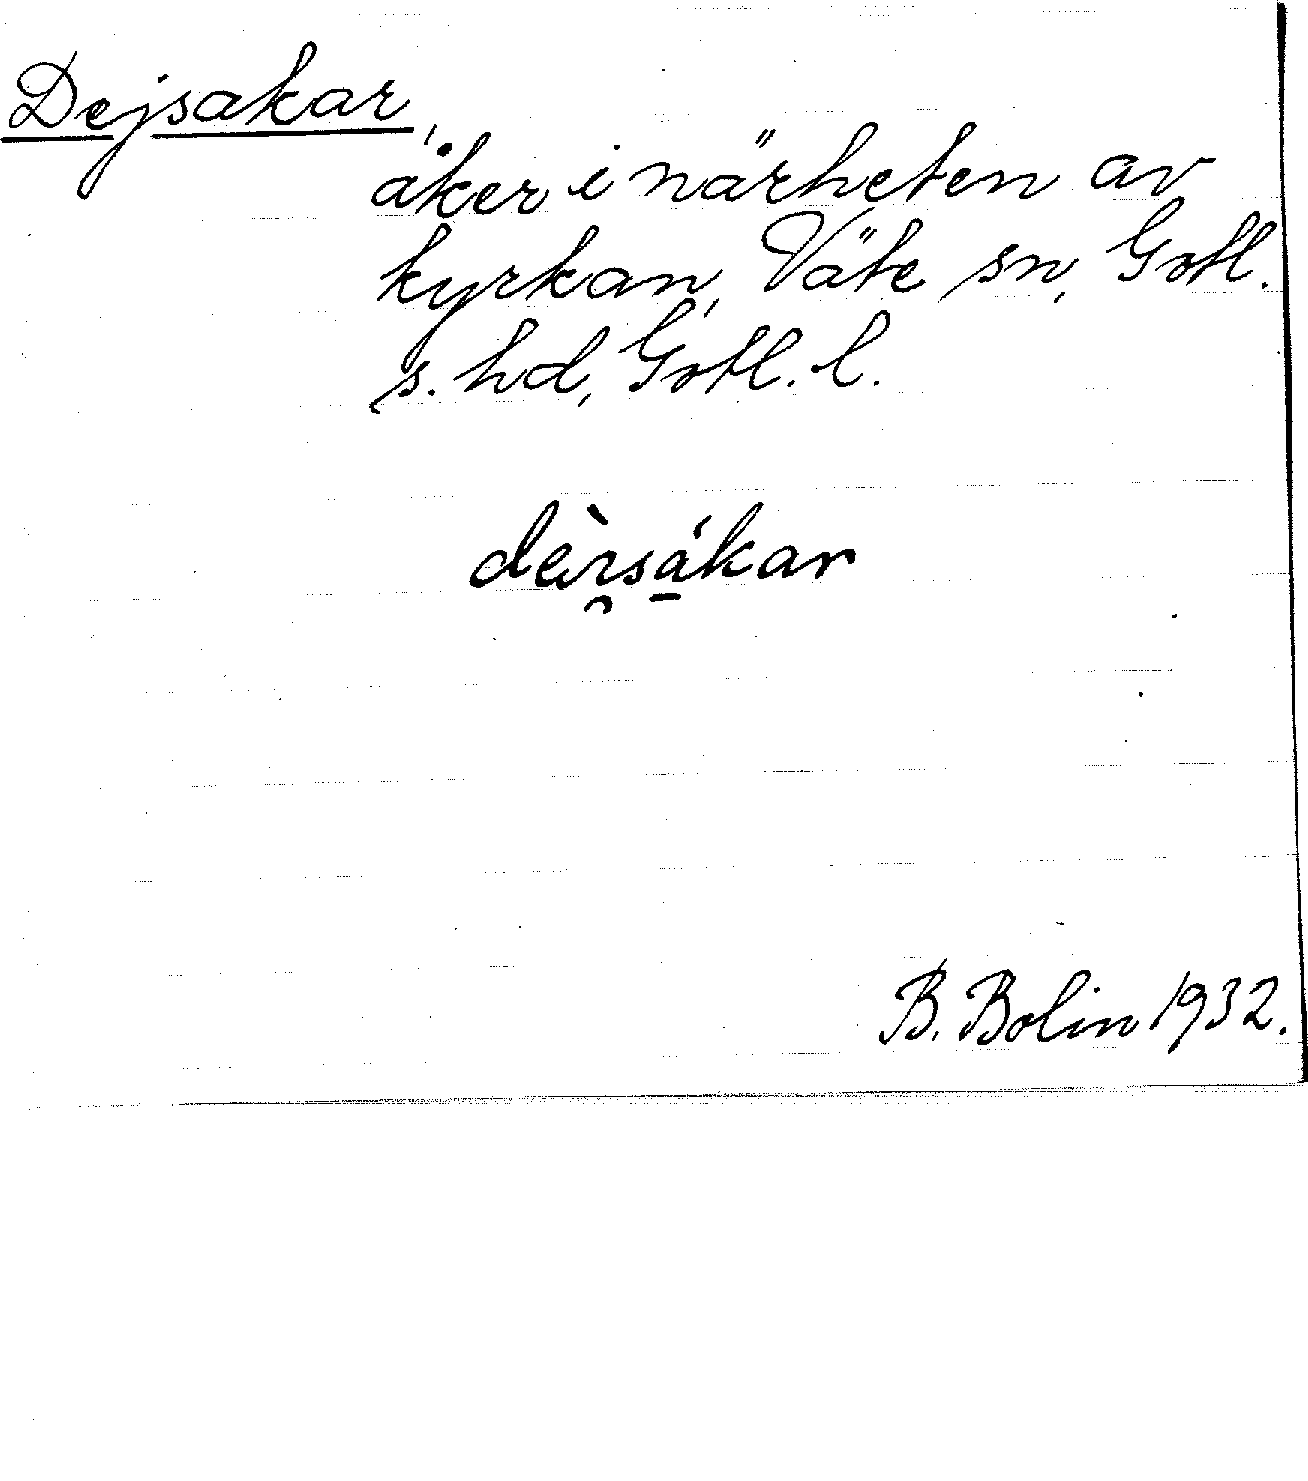 Dejsakar,
åker i närheten av
kyrkan, Väte sn, Gotl.
s. hd, Gotl. l.
B. Bolin 1932.